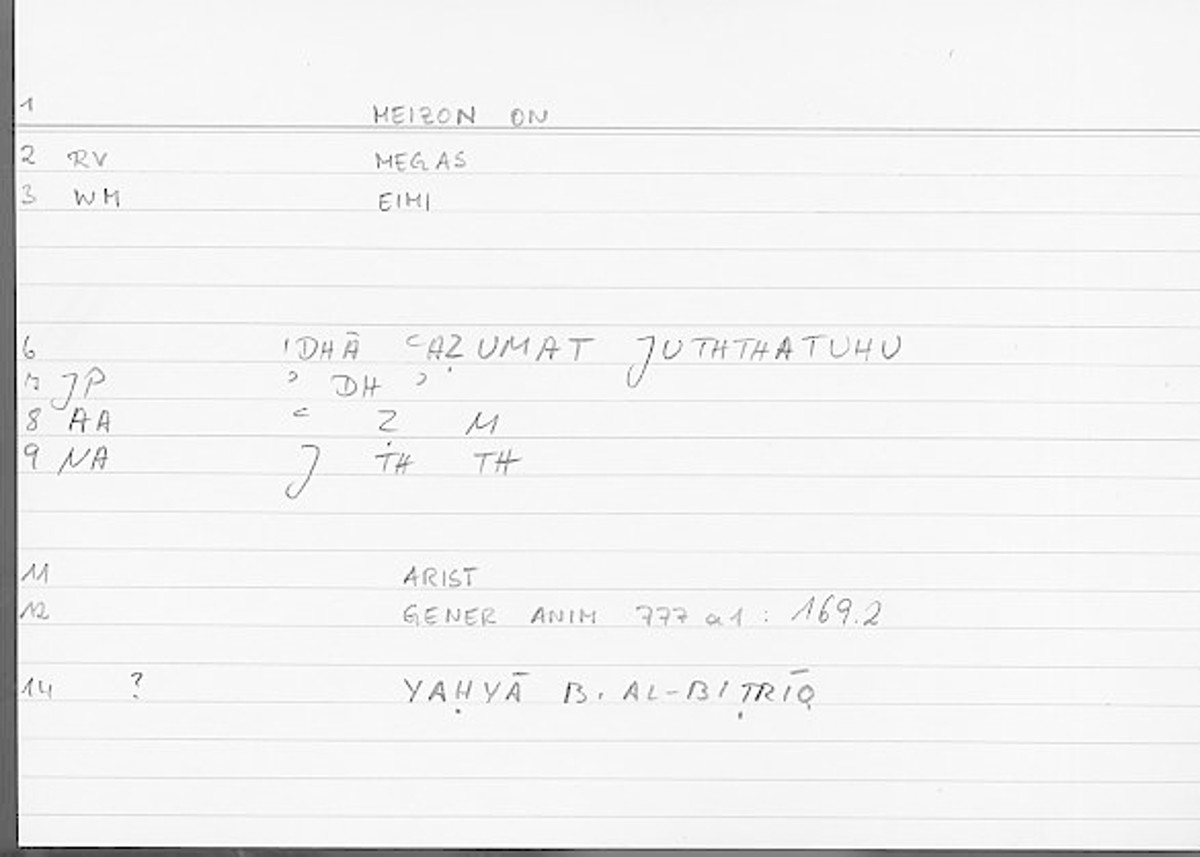 1 MEIZON ON
2 RV MEGAS
3 WM EIMI
6 'IDHĀ ʿAẒUMAT JUTHTHATUHU
7 JP ʾ DH ʾ
8 AA ʿ Ẓ M
9 NA J TH TH
11 ARIST
12 GENER ANIM 777 a1 : 169.2
14 ? YAḤYĀ B. AL-BIṬRĪQ